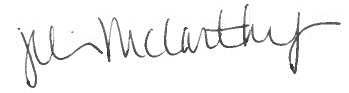 Julia McCarthy